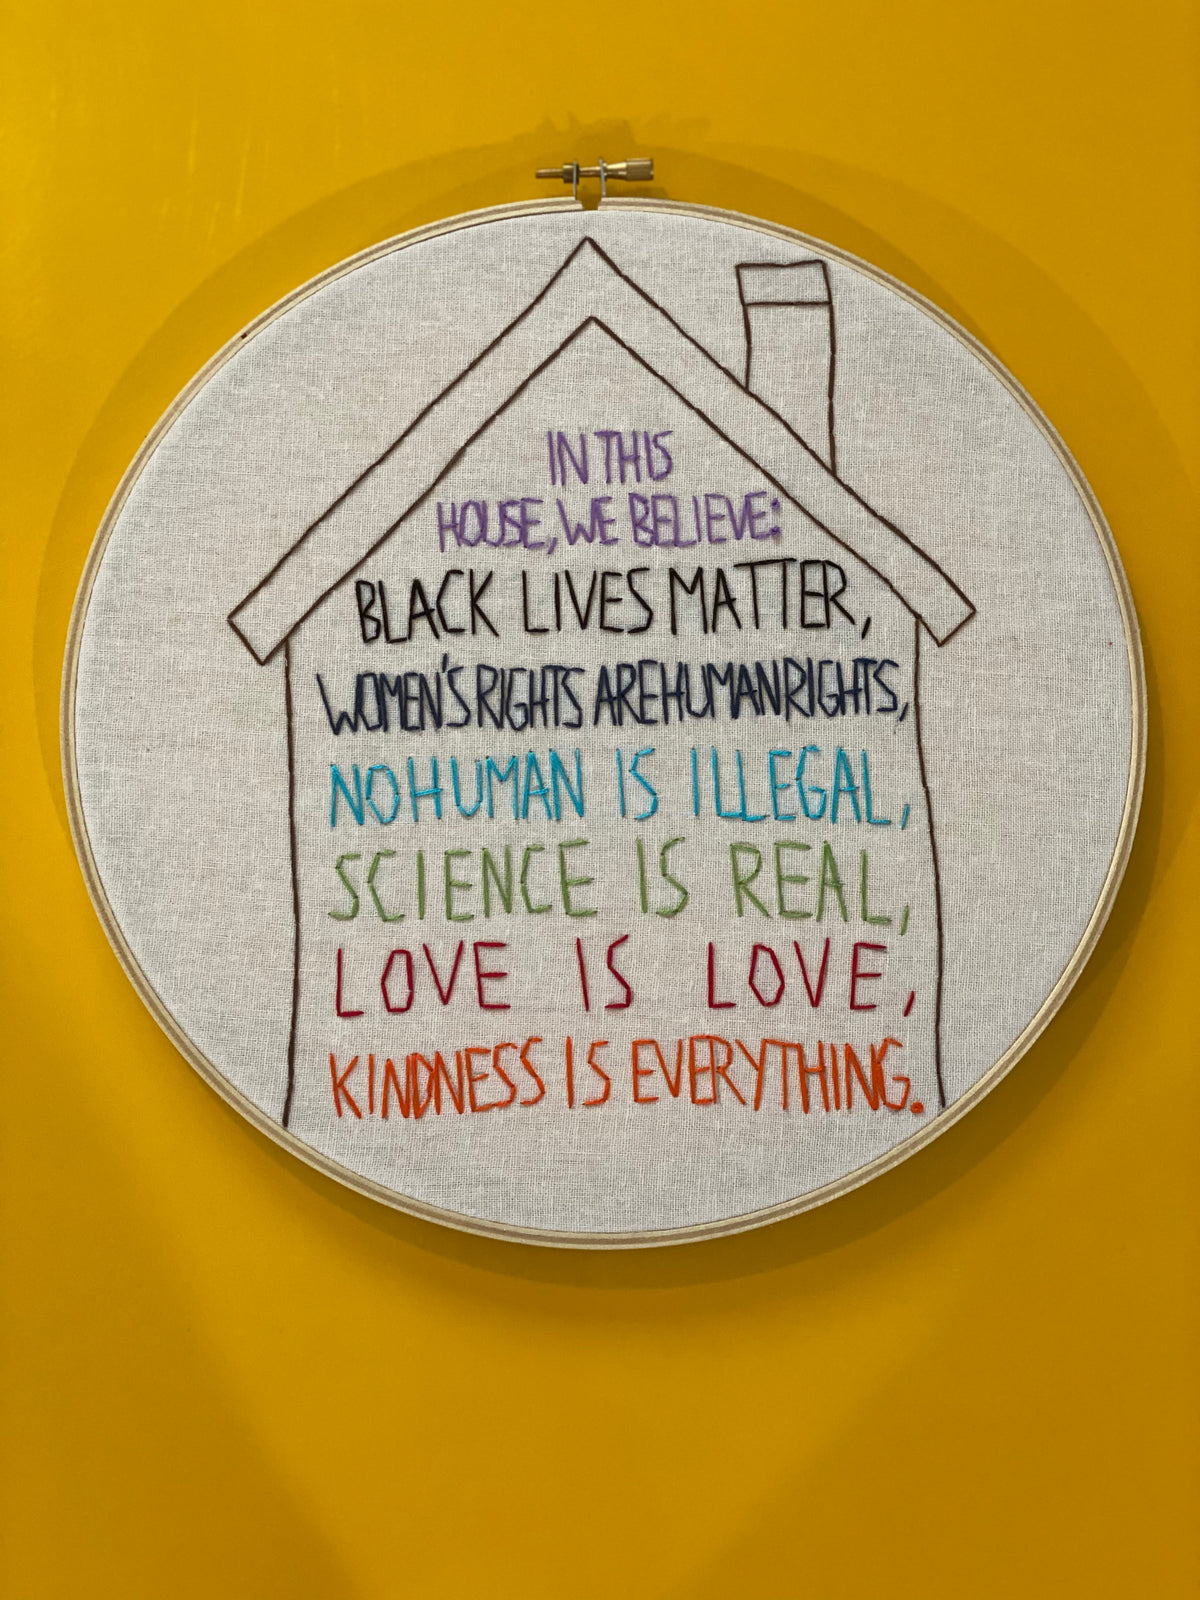 IN THIS
HOUSE, WE BELIEVE:
BLACK LIVES MATTER,
WOMEN'S RIGHTS ARE HUMAN RIGHTS,
NO HUMAN IS ILLEGAL,
SCIENCE IS REAL,
LOVE IS LOVE,
KINDNESS IS EVERYTHING.